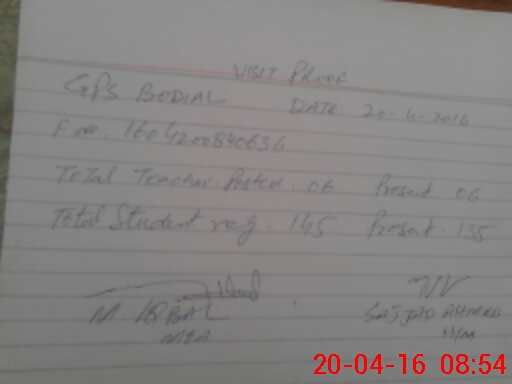 VISIT PROOF
GPS BODIAL DATE 20-4-2016
F no. 1604200840636
Total Teacher Posted. 06 Present. 06
Total Student reg. 145 Present. 135
M IQBAL SAJJAD AHMED
MEA H/M
20-04-16 08:54